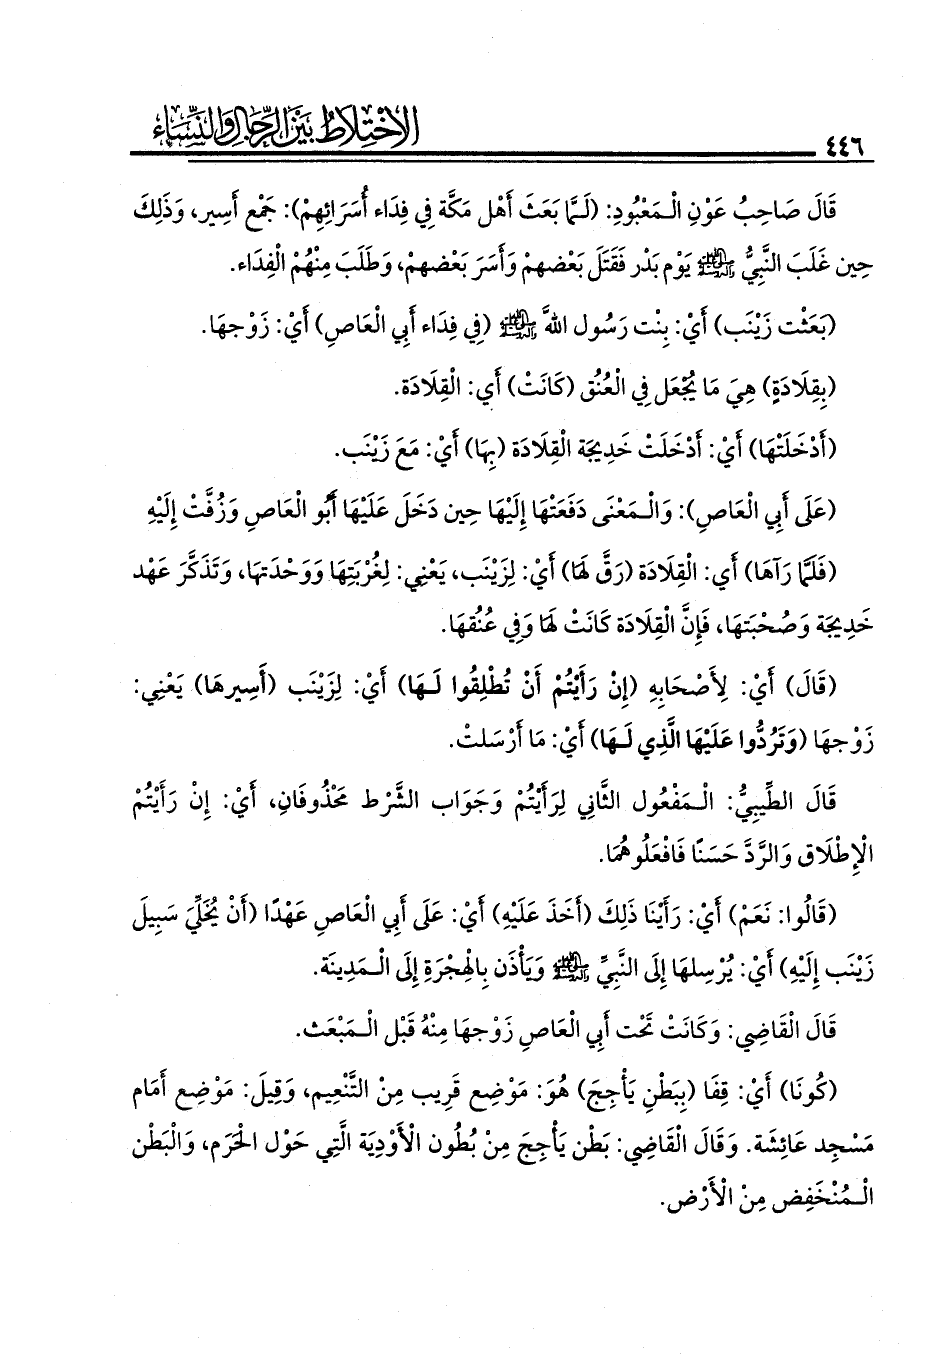 ٤٤٦ الاختلاط بين الرجال والنساء
قَالَ صَاحِبُ عَوْنِ الْـمَعْبُودِ: (لَـمَّا بَعَثَ أَهْل مَكَّة فِي فِدَاء أُسَرَائِهِمْ): جَمْع أَسِير، وَذَلِكَ
حِين غَلَبَ النَّبِيُّ ﷺ يَوْم بَدْر فَقَتَلَ بَعْضهمْ وَأَسَرَ بَعْضهمْ، وَطَلَبَ مِنْهُمْ الْفِدَاء.
(بَعَثْت زَيْنَب) أَيْ: بِنْت رَسُول اللهَّ ﷺ (فِي فِدَاء أَبِي الْعَاصِ) أَيْ: زَوْجهَا.
(بِقِلَادَةٍ) هِيَ مَا يُجْعَل فِي الْعُنُق (كَانَتْ) أَي: الْقِلَادَة.
(أَدْخَلَتْهَا) أَيْ: أَدْخَلَتْ خَدِيجَة الْقِلَادَة (بِهَا) أَيْ: مَعَ زَيْنَب.
(عَلَى أَبِي الْعَاصِ): وَالْـمَعْنَى دَفَعَتْهَا إِلَيْهَا حِين دَخَلَ عَلَيْهَا أَبُو الْعَاصِ وَزُفَّتْ إِلَيْهِ
(فَلَمَّا رَآهَا) أَي: الْقِلَادَة (رَقَّ لَهَا) أَيْ: لِزَيْنَب، يَعْنِي: لِغُرْبَتِهَا وَوَحْدَتهَا، وَتَذَكَّرَ عَهْد
خَدِيجَة وَصُحْبَتهَا، فَإِنَّ الْقِلَادَة كَانَتْ لَهَا وَفِي عُنُقهَا.
(قَالَ) أَيْ: لِأَصْحَابِهِ (إِنْ رَأَيْتُمْ أَنْ تُطْلِقُوا لَـهَا) أَيْ: لِزَيْنَب (أَسِيرهَا) يَعْنِي:
زَوْجهَا (وَتَرُدُّوا عَلَيْهَا الَّذِي لَـهَا) أَيْ: مَا أَرْسَلتْ.
قَالَ الطِّيبِيُّ: الْـمَفْعُول الثَّانِي لِرَأَيْتُمْ وَجَوَاب الشَّرْط مَحْذُوفَانِ، أَيْ: إِنْ رَأَيْتُمْ
الْإِطْلَاق وَالرَّدَّ حَسَنًا فَافْعَلُوهُمَا.
(قَالُوا: نَعَمْ) أَيْ: رَأَيْنَا ذَلِكَ (أَخَذَ عَلَيْهِ) أَيْ: عَلَى أَبِي الْعَاصِ عَهْدًا (أَنْ يُخَلِّيَ سَبِيلَ
زَيْنَب إِلَيْهِ) أَيْ: يُرْسِلهَا إِلَى النَّبِيِّ ﷺ وَيَأْذَن بِالْهِجْرَةِ إِلَى الْـمَدِينَة.
قَالَ الْقَاضِي: وَكَانَتْ تَحْت أَبِي الْعَاصِ زَوَّجهَا مِنْهُ قَبْل الْـمَبْعَث.
(كُونَا) أَيْ: قِفَا (بِبَطْنِ يَأْجِجَ) هُوَ: مَوْضِع قَرِيب مِنْ التَّنْعِيم، وَقِيلَ: مَوْضِع أَمَام
مَسْجِد عَائِشَة. وَقَالَ الْقَاضِي: بَطْن يَأْجِجَ مِنْ بُطُون الْأَوْدِيَة الَّتِي حَوْل الْحَرَم، وَالْبَطْن
الْـمُنْخَفِض مِنْ الْأَرْض.